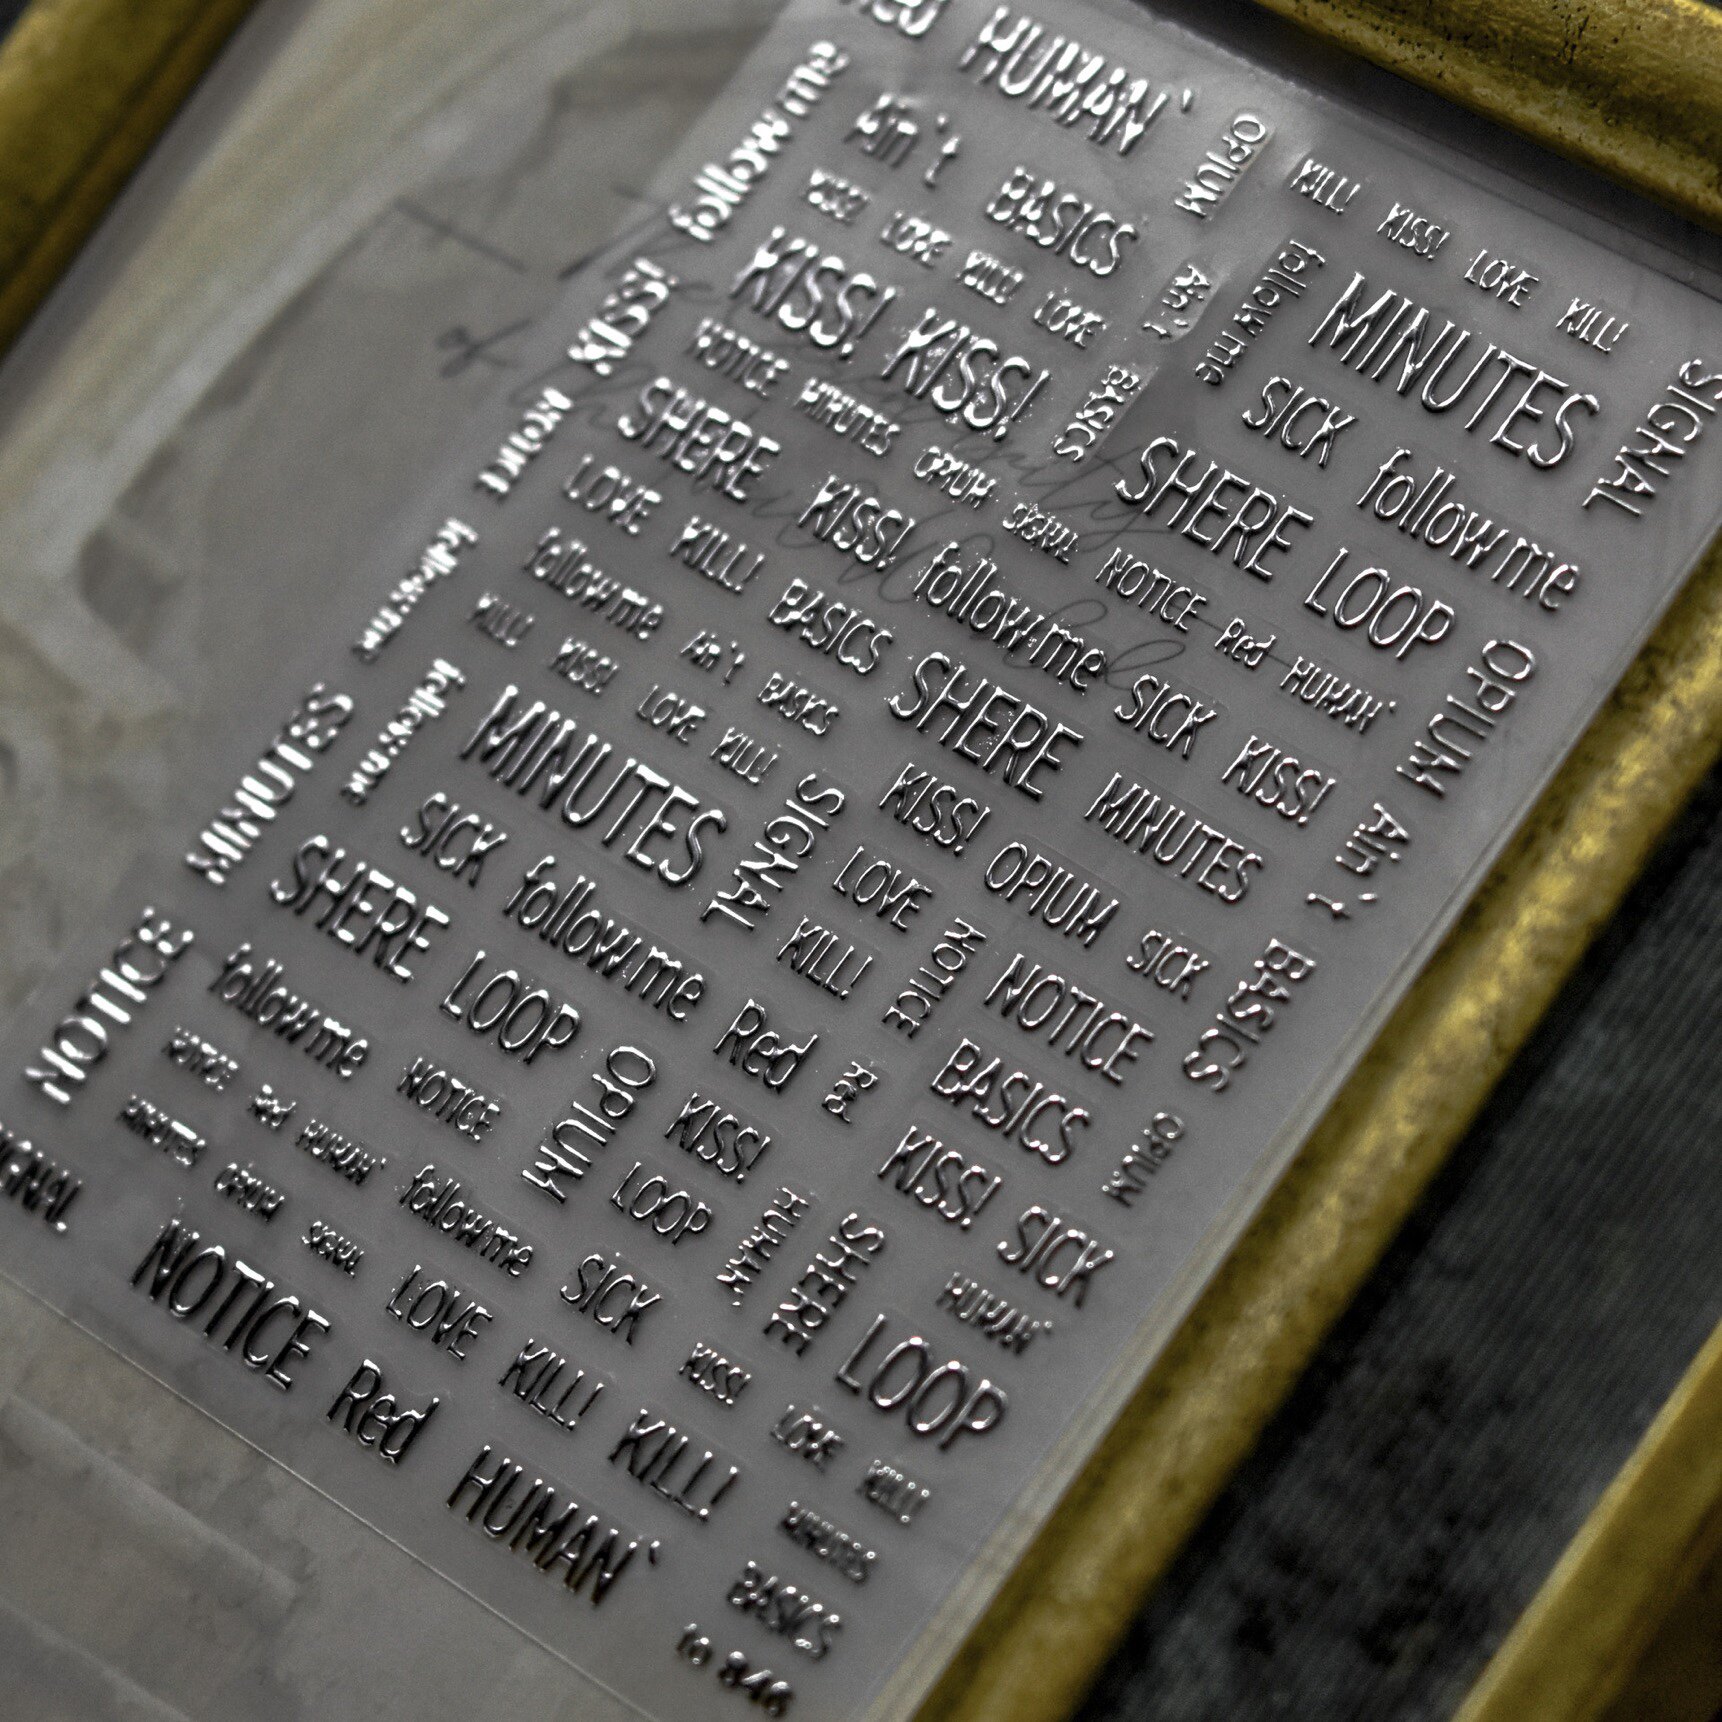 HUMAN`
OPIUM
follow me
Ain`t BASICS
KILL! KISS! LOVE KILL!
KISS! LOVE KILL! LOVE
Ain`t
follow me
MINUTES
SIGNAL
KISS! KISS!
BASICS
KISS!
NOTICE MINUTES OPIUM SIGNAL NOTICE Red HUMAN`
SICK follow me
SHERE KISS! follow me SICK KISS!
SHERE LOOP
NOTICE
LOVE KILL! BASICS SHERE MINUTES
OPIUM Ain`t BASICS
follow me
follow me Ain`t BASICS
KILL! KISS! LOVE KILL!
KISS! OPIUM SICK
follow me
MINUTES
SIGNAL
LOVE
NOTICE
NOTICE
MINUTES
SICK follow me Red
KILL!
BASICS
SHERE LOOP
OPIUM
KISS!
Red
KISS! SICK
OPIUM
NOTICE
follow me NOTICE
LOOP
HUMAN`
SHERE
HUMAN`
NOTICE Red HUMAN` follow me SICK KISS! LOVE KILL!
LOOP
MINUTES OPIUM SIGNAL LOVE KILL! KILL! MINUTES
SIGNAL
NOTICE Red HUMAN` BASICS
to 846
of